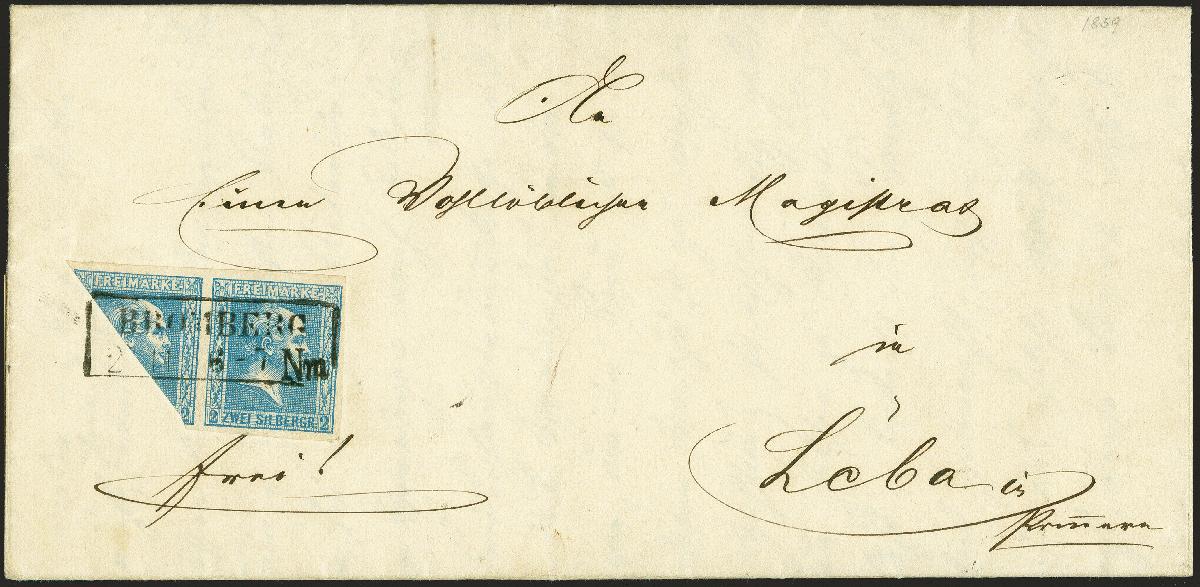 1859
An
Einen Wohllöblichen Magistrat
FREIMARKE FREIMARKE
BROMBERG
2 11 6-7 Nm
2 2 ZWEI SILBERGR. 2
in
frei!
Leba in
Pommern